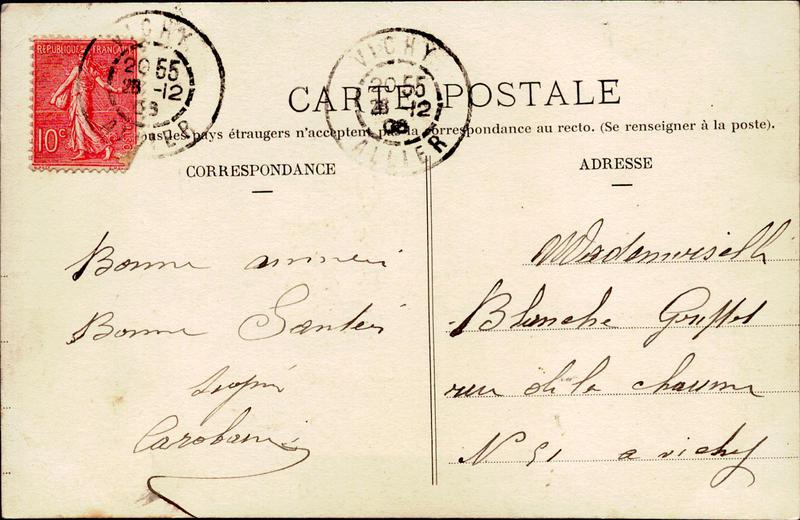 REPUBLIQUE FRANÇAISE
10c
VICHY
20 55
28 -12
08
ALLIER
VICHY
20 55
28 -12
08
ALLIER
CARTE POSTALE
Tous les pays étrangers n'acceptent pas la correspondance au recto. (Se renseigner à la poste).
CORRESPONDANCE
ADRESSE
Bonne anneé
Bonne Santeé
Mademoiselle
Blanche
rue de la chaume
N 51 a vichy